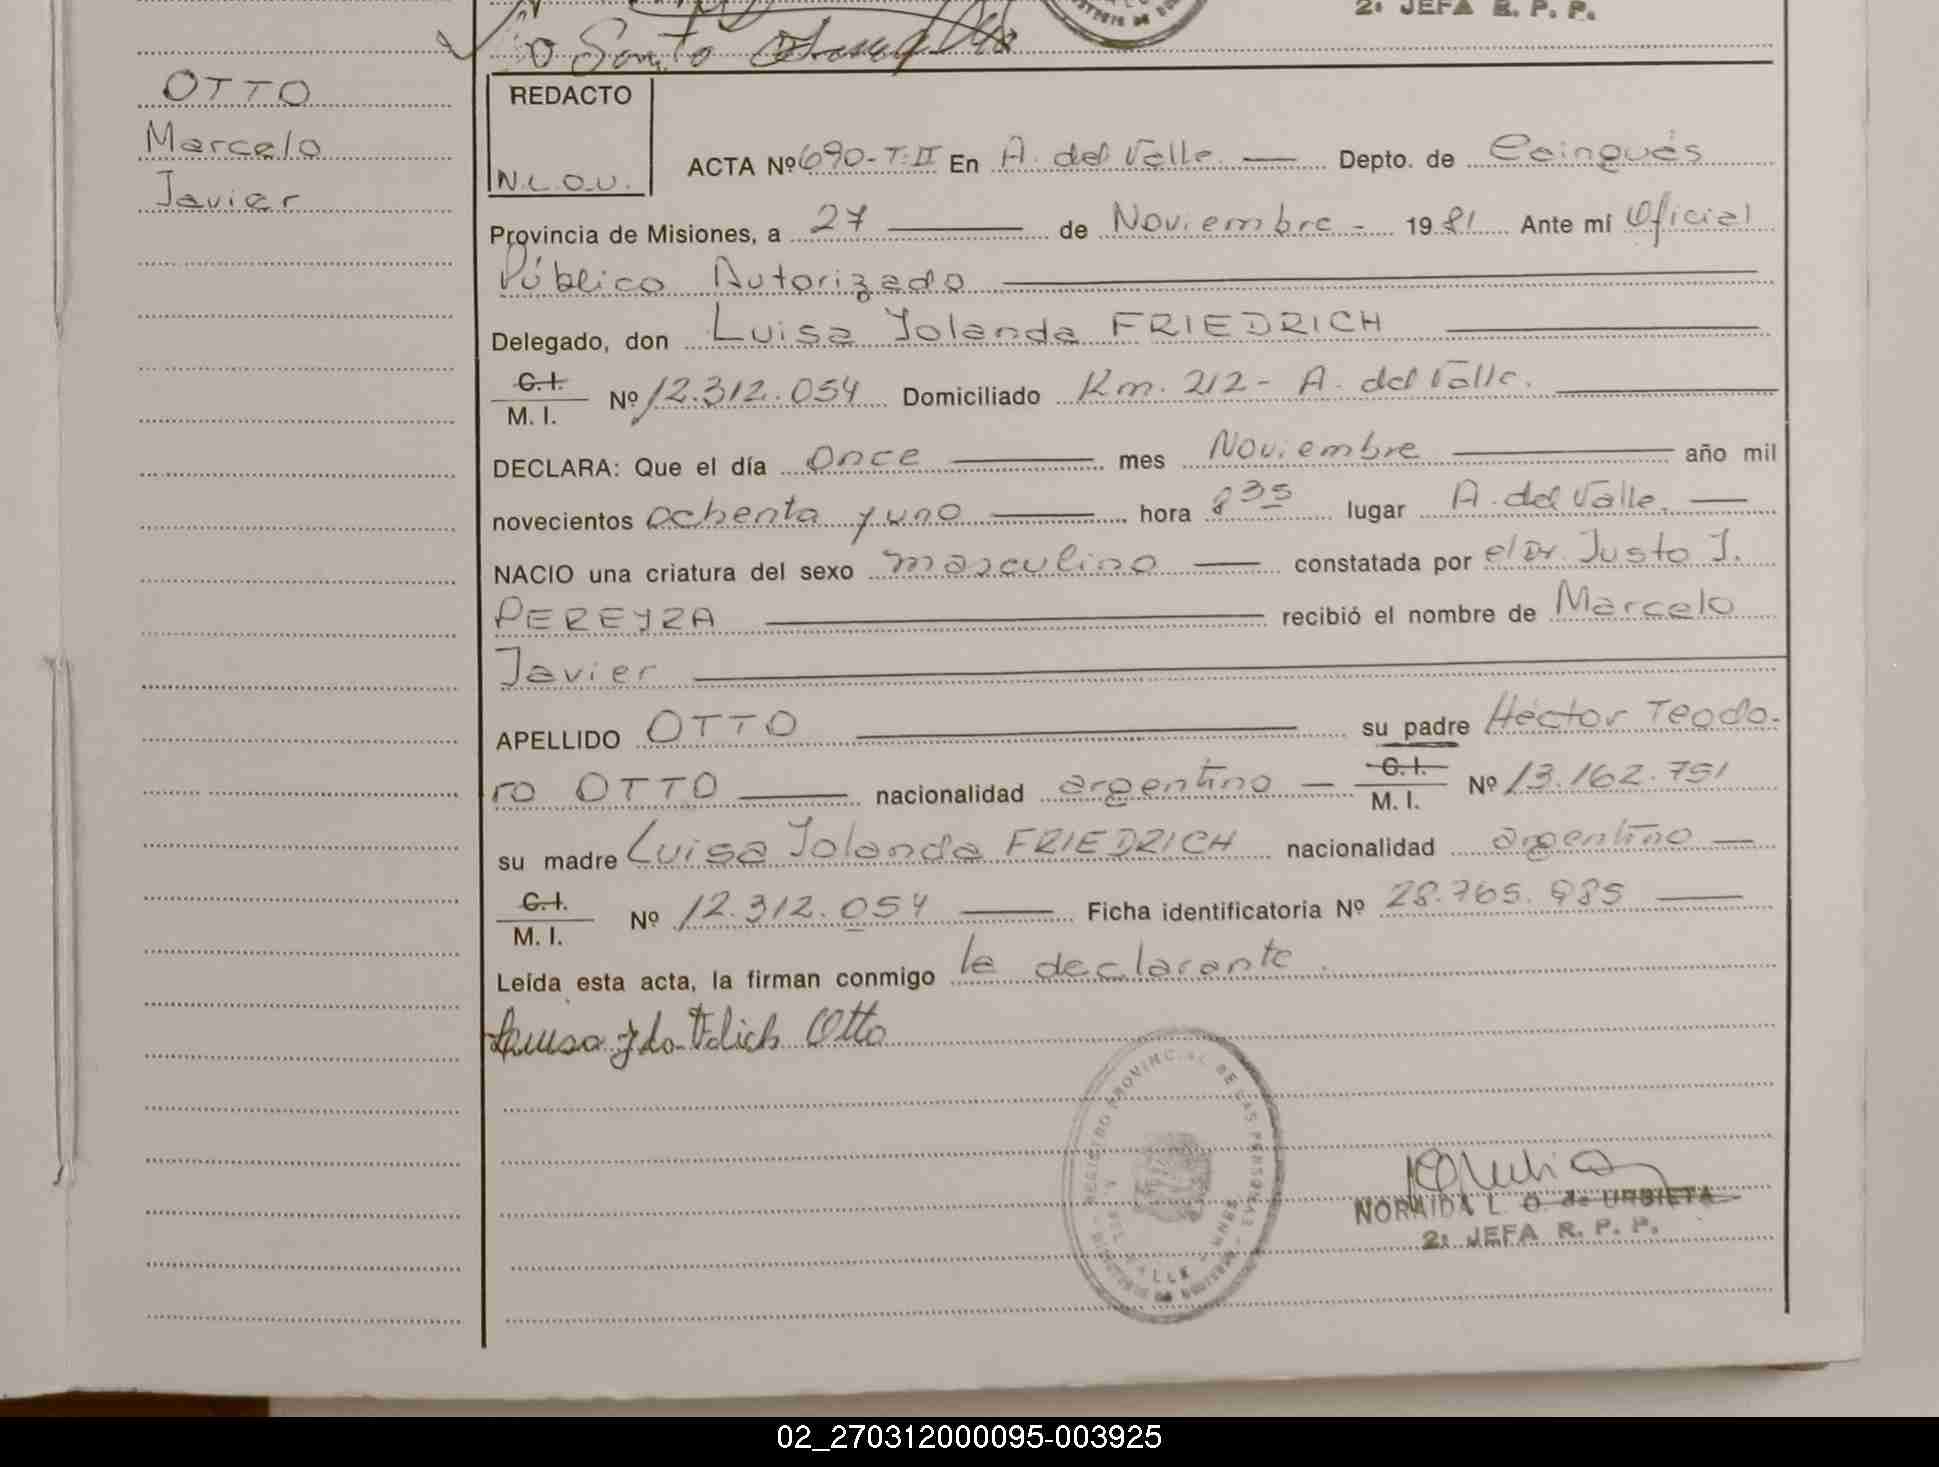 2ª JEFA R. P. P.
Santo
OTTO
Marcelo
Javier
REDACTO
N.L.O.U.
ACTA Nº 690-T.II En A. del Valle. Depto. de Caingués
Provincia de Misiones, a 27 de Noviembre - 1981 Ante mí Oficial
Público Autorizado
Delegado, don Luisa Yolanda FRIEDRICH
C.I.
M. I. Nº 12.312.054 Domiciliado Km. 212 - A. del Valle.
DECLARA: Que el día once mes Noviembre año mil
novecientos ochenta y uno hora 8 35 lugar A. del Valle.
NACIO una criatura del sexo masculino constatada por el Dr. Justo J.
PEREYRA recibió el nombre de Marcelo
Javier
APELLIDO OTTO su padre Héctor Teodo-
ro OTTO nacionalidad argentino C.I. M. I. Nº 13.162.751
su madre Luisa Yolanda FRIEDRICH nacionalidad argentino
C.I.
M. I. Nº 12.312.054 Ficha identificatoria Nº 28.765.985
Leída esta acta, la firman conmigo la declarante.
Luisa Otto
REGISTRO PROVINCIAL DE LAS PERSONAS
NORAIDA L. O. de URBIETA
2ª JEFA R. P. P.
02_270312000095-003925